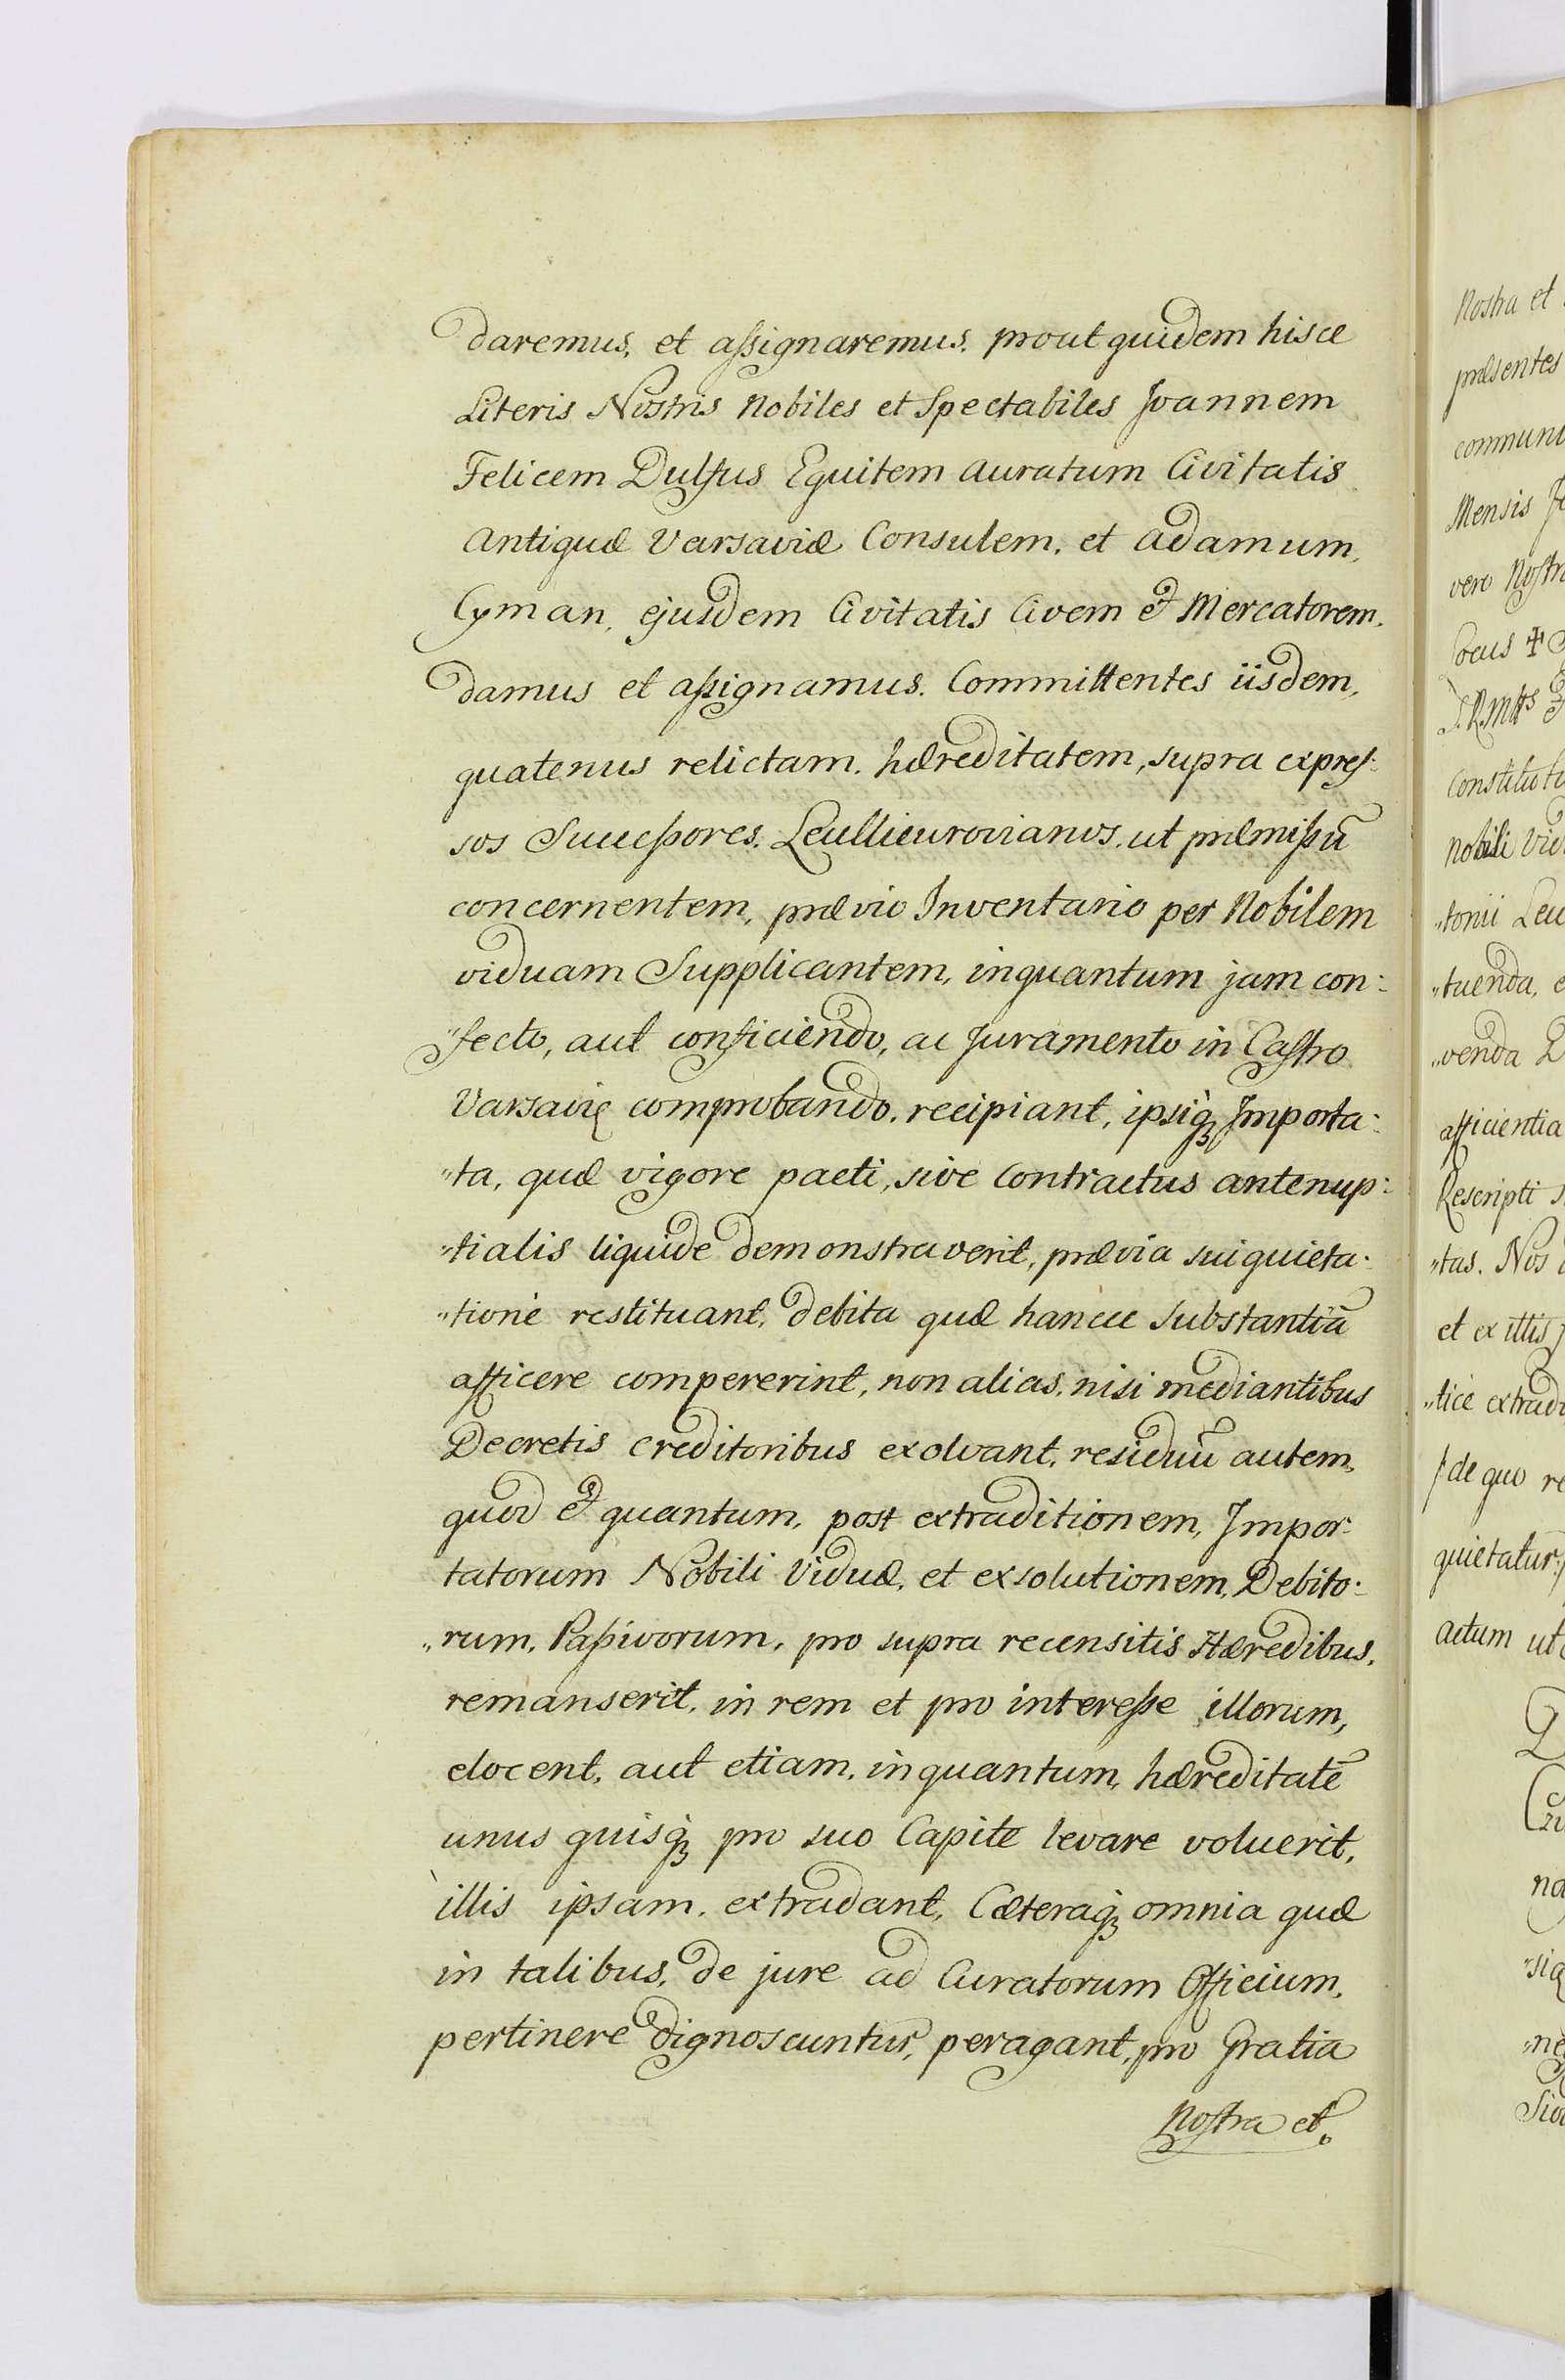 daremus, et assignaremus. prout quidem hisce
Literis Nostris Nobiles et Spectabiles Joannem
Felicem Dulfus Equitem Auratum Civitatis
Antiquæ Varsaviæ Consulem, et Adamum,
Cyman, ejusdem Civitatis Civem & Mercatorem,
damus et assignamus. Committentes iisdem,
quatenus relictam. hæreditatem, supra expres:
sos Successores. Leullieurovianos. ut præmissũ
concernentem, prævio Inventario per Nobilem
viduam Supplicantem, inquantum jam con:
"fecto, aut conficiendo, ac Juramento in Castro
Varsavię comprobando. recipiant, ipsiq₃ Importa:
"ta, quæ vigore pacti, sive Contractus antenup:
"tialis liquide demonstraverit, prævia sui quieta:
"tione restituant, debita quæ hancce substantiã
afficere compererint, non alias. nisi mediantibus
Decretis Creditoribus exolvant, residuũ autem,
quod & quantum, post extraditionem, Impor:
tatorum Nobili Viduæ, et exsolutionem, Debito:
"rum, Passivorum, pro supra recensitis Hæredibus,
remanserit, in rem et pro interesse illorum,
elocent, aut etiam, inquantum, hæreditatẽ
unus quisq₃ pro suo Capite levare voluerit,
illis ipsam. extradant, Cæteraq₃ omnia quæ
in talibus, de jure ad Curatorum Officium,
pertinere dignoscuntur, peragant, pro Gratia
Nostra et
Nostra et
præsentes
communi
Mensis
vero Nostr
Locus ✝
Constituti
Nobili Vid
"tonii Leu
"tuenda, e
"venda
afficientia
Rescripti s
"tus. Nos
et ex illis
"tice extrad
de quo re
quietatur
Actum ut